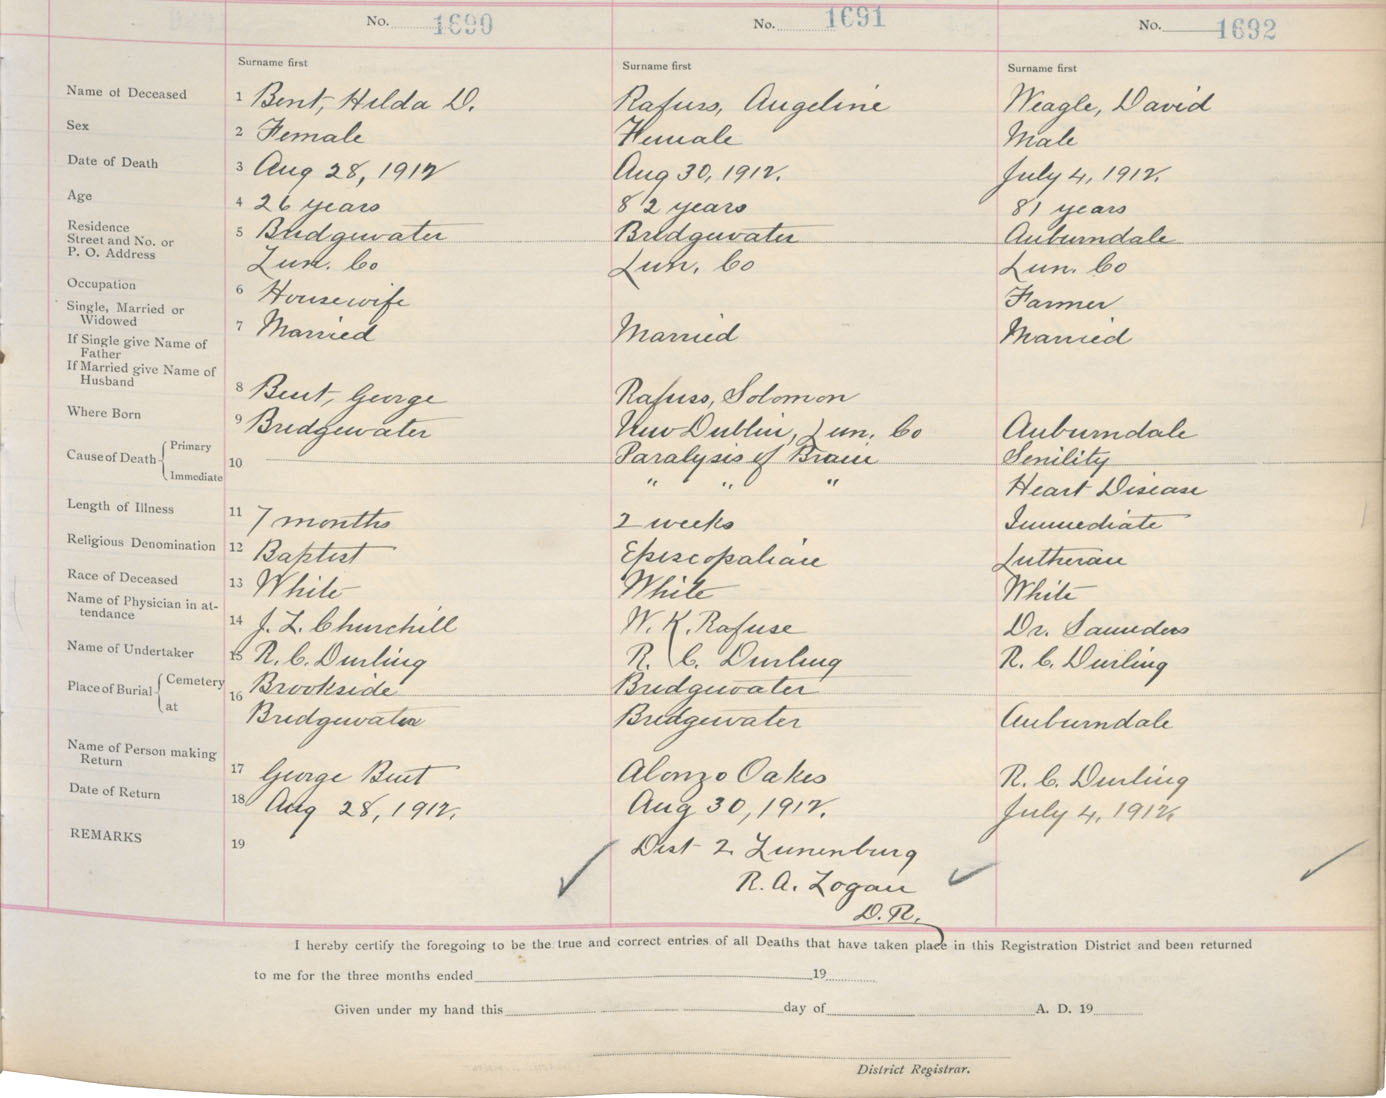 No. 1690 No. 1691 No. 1692
Surname first Surname first Surname first
Name of Deceased 1 Bent, Hilda D. Rafuss, Angeline Weagle, David
Sex 2 Female Female Male
Date of Death 3 Aug 28, 1912 Aug 30, 1912. July 4, 1912.
Age 4 26 years 82 years 81 years
Residence
Street and No. or 5 Bridgewater Bridgewater Auburndale
P. O. Address Lun. Co Lun. Co Lun. Co
Occupation 6 Housewife Farmer
Single, Married or
Widowed 7 Married Married Married
If Single give Name of
Father
If Married give Name of
Husband 8 Bent, George Rafuss, Solomon
Where Born 9 Bridgewater New Dublin, Lun. Co Auburndale
Cause of Death Primary 10 Paralysis of Brain Senility
Immediate " " " Heart Disease
Length of Illness 11 7 months 2 weeks Immediate
Religious Denomination 12 Baptist Episcopalian Lutheran
Race of Deceased 13 White White White
Name of Physician in at-
tendance 14 J. L. Churchill W. K. Rafuse Dr. Saunders
Name of Undertaker 15 R. C. Durling R. C. Durling R. C. Durling
Place of Burial Cemetery 16 Brookside Bridgewater
at Bridgewater Bridgewater Auburndale
Name of Person making
Return 17 George Bent Alonzo Oakes R. C. Durling
Date of Return 18 Aug 28, 1912. Aug 30, 1912. July 4, 1912.
REMARKS 19 Dist 2 Lunenburg
R. A. Logan
D. R.
I hereby certify the foregoing to be the true and correct entries of all Deaths that have taken place in this Registration District and been returned
to me for the three months ended 19
Given under my hand this day of A. D. 19
District Registrar.